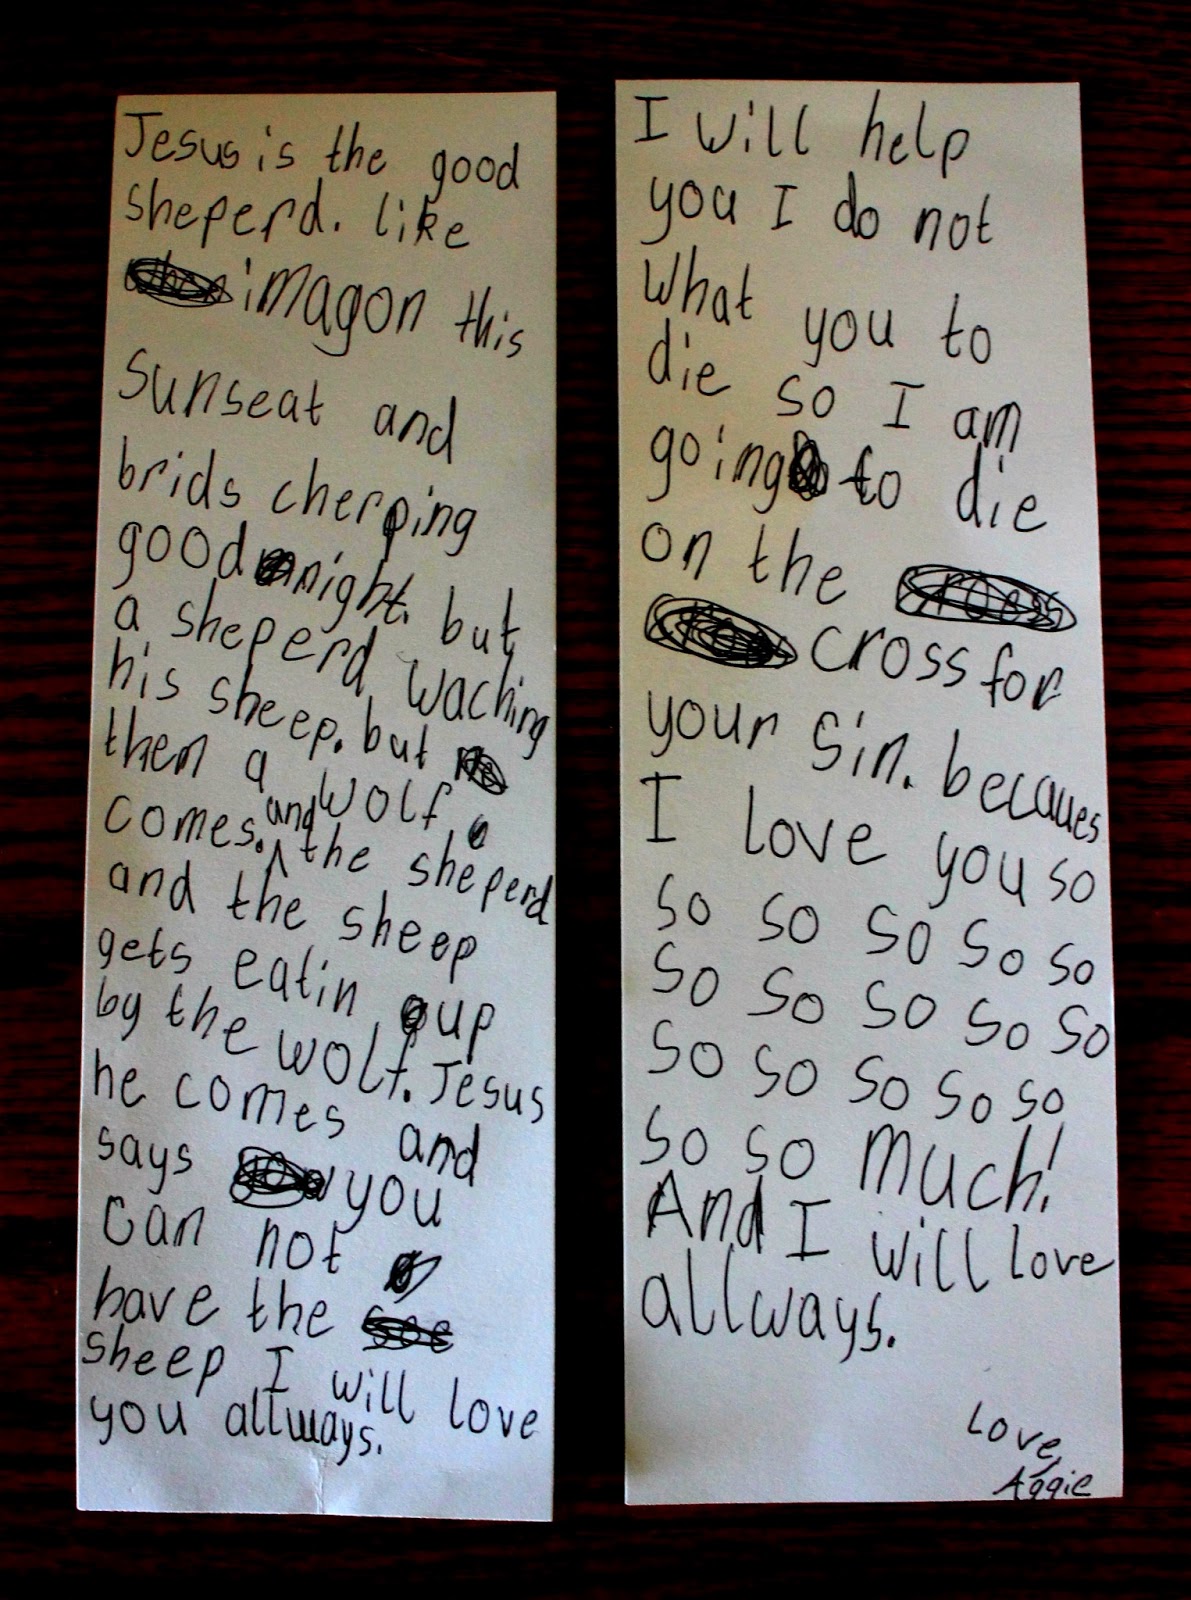 Jesus is the good
sheperd. like
imagon this
sunseat and
brids cherping
good night. but
a sheperd waching
his sheep. but
them a wolf
comes. and the sheperd
and the sheep
gets eatin up
by the wolf. Jesus
he comes and
says you
can not
have the
sheep I will love
you allways.
I will help
you I do not
what you to
die so I am
going to die
on the
cross for
your sin. becaues
I love you so
so so so so so
so so so so so
so so so so so
so so much!
And I will love
allways.
Love,
Aggie